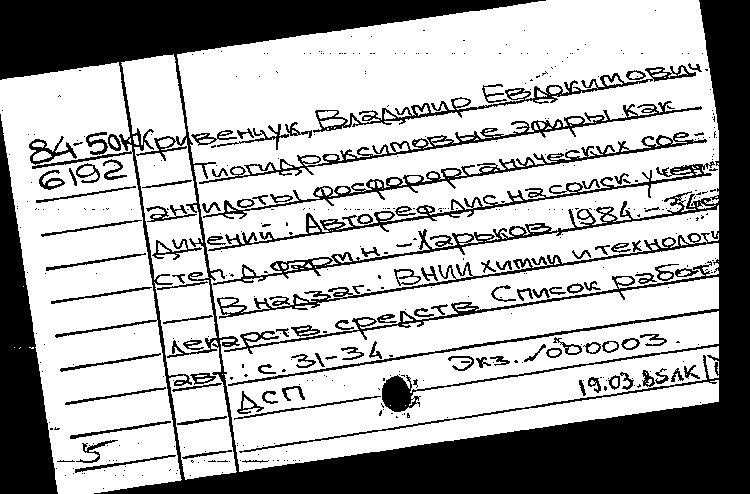 84-50К
6192
Кривенчук, Владимир Евдокимович.
Тиогидроксимовые эфиры как
антидоты фосфорорганических сое-
динений : Автореф. дис. на соиск. учен.
степ. д. фарм. н. - Харьков, 1984. - 34 с.
В надзаг. : ВНИИ химии и технологи
лекарств. средств. Список работ
авт. : с. 31-34.
Экз. 000003.
ДСП
19.03.85
5